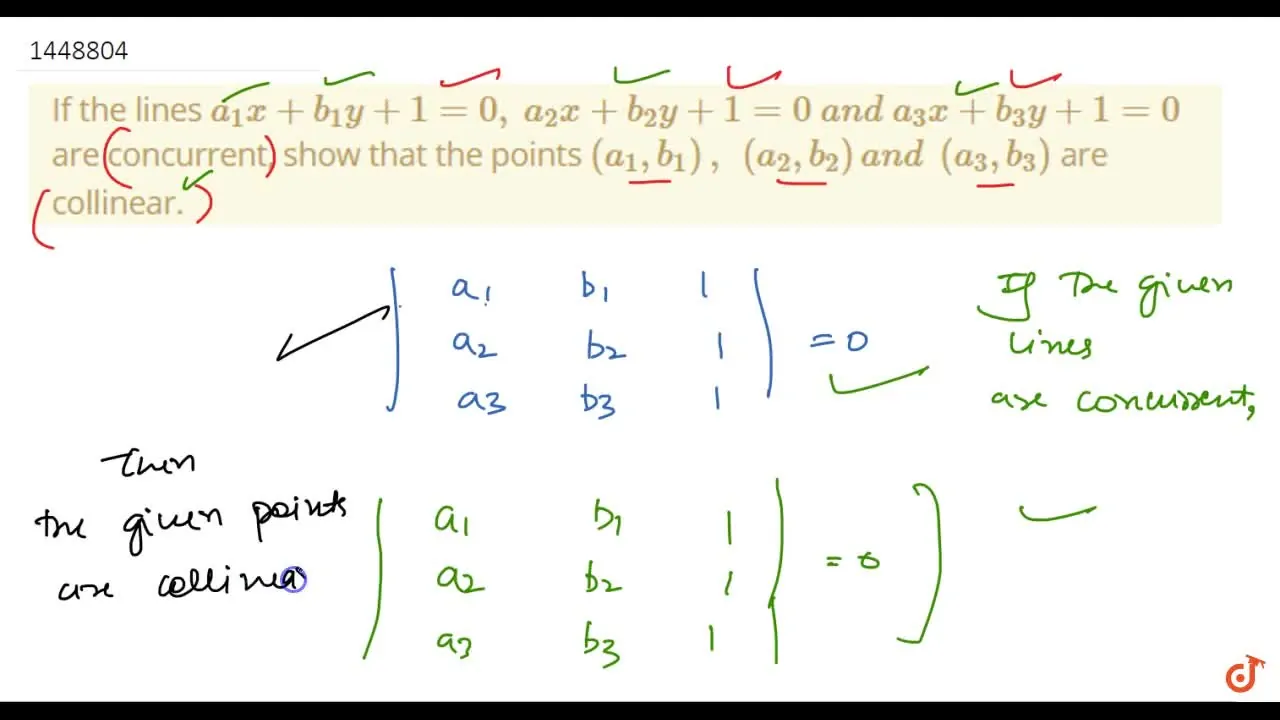 1448804
If the lines a₁x + b₁y + 1 = 0, a₂x + b₂y + 1 = 0 and a₃x + b₃y + 1 = 0
are concurrent, show that the points (a₁, b₁) , (a₂, b₂) and (a₃, b₃) are
collinear.
| a₁ b₁ 1 |
| a₂ b₂ 1 | = 0
| a₃ b₃ 1 |
If the given
lines
are concurrent,
Then
the given points
are collinea
| a₁ b₁ 1 |
| a₂ b₂ 1 | = 0 ]
| a₃ b₃ 1 |